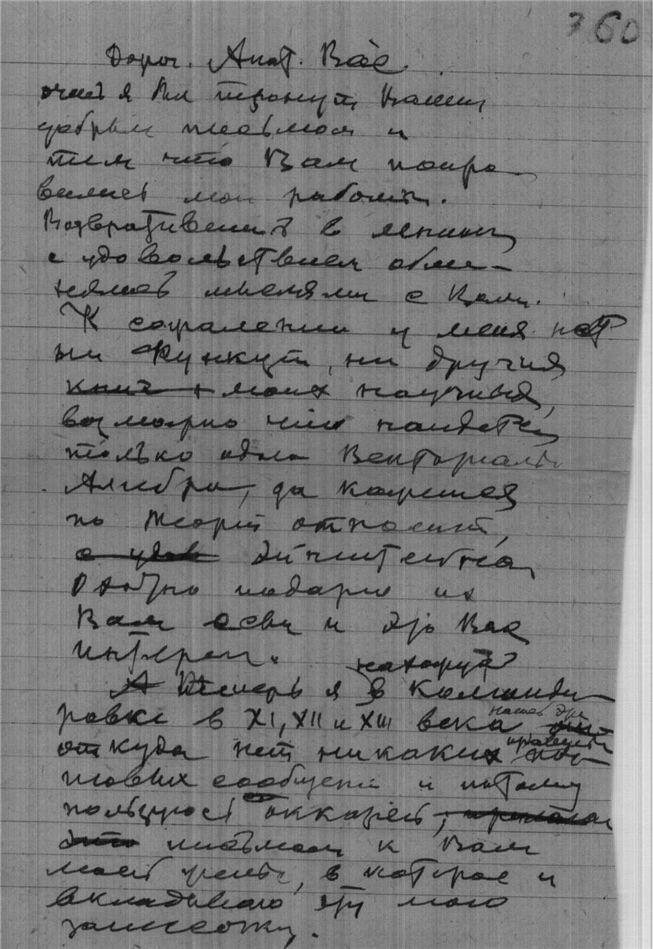 760
Дорог. Анат. Вас.
очень я был тронут Вашим
добрым письмом и
тем что Вам понра
вились мои работы.
Возвратившись в Ленинг
с удовольствием обме-
няюсь мыслями с Вами.
К сожалению у меня нет
ни Функций, ни других
книг моих научных,
возможно что найдется
только одна Векторials
Алгебра, да кажется
по теории относит,
Эйнштейна
охотно подарю их
Вам если и это Вас
интерес.
Теперь я нахожусь в команди
ровке в XI, XII и XIII века нашей эры
откуда нет никаких
новых сообщений и потому
пользуюсь оказией,
письмом к Вам
моей жены, в которое и
вкладываю эту мою
записочку.